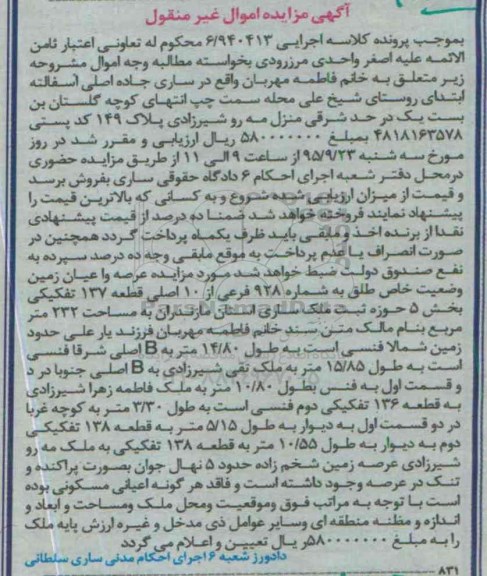 آگهی مزایده اموال غیر منقول
بموجب پرونده کلاسه اجرایی ۶/۹۴۰۴۱۳ محکوم له تعاونی اعتبار ثامن
الائمه علیه اصغر واحدی مرزرودی بخواسته مطالبه وجه اموال مشروحه
زیر متعلق به خانم فاطمه مهربان واقع در ساری جاده اصلی آسفالته
ابتدای روستای شیخ علی محله سمت چپ انتهای کوچه گلستان بن
بست یک در حد شرقی منزل مه رو شیرزادی پلاک ۱۴۹ کد پستی
۴۸۱۸۱۶۳۵۷۸ بمبلغ ۵۸۰۰۰۰۰۰۰ ریال ارزیابی و مقرر شد در روز
مورخ سه شنبه ۹۵/۹/۲۳ از ساعت ۹ الی ۱۱ از طریق مزایده حضوری
درمحل دفتر شعبه اجرای احکام ۶ دادگاه حقوقی ساری بفروش برسد
و قیمت از میزان ارزیابی شده شروع و به کسانی که بالاترین قیمت را
پیشنهاد نمایند فروخته خواهد شد ضمنا ده درصد از قیمت پیشنهادی
نقدا از برنده اخذ و مابقی باید ظرف یکماه پرداخت گردد همچنین در
صورت انصراف یا عدم پرداخت به موقع مابقی وجه ده درصد سپرده به
نفع صندوق دولت ضبط خواهد شد مورد مزایده عرصه وا عیان زمین
وضعیت خاص طلق به شماره ۹۲۸ فرعی از ۱۰ اصلی قطعه ۱۳۷ تفکیکی
بخش ۵ حوزه ثبت ملک ساری استان مازندران به مساحت ۲۳۲ متر
مربع بنام مالک متن سند خانم فاطمه مهربان فرزند یار علی حدود
زمین شمالا فنسی است به طول ۱۴/۸۰ متر به B اصلی شرقا فنسی
است به طول ۱۵/۸۵ متر به ملک تقی شیرزادی به B اصلی جنوبا در د
و قسمت اول به فنس بطول ۱۰/۸۰ متر به ملک فاطمه زهرا شیرزادی
به قطعه ۱۳۶ تفکیکی دوم فنسی است به طول ۳/۳۰ متر به کوچه غربا
در دو قسمت اول به دیوار به طول ۵/۱۵ متر به قطعه ۱۳۸ تفکیکی
دوم به دیوار به طول ۱۰/۵۵ متر به قطعه ۱۳۸ تفکیکی به ملک مه رو
شیرزادی عرصه زمین شخم زاده حدود ۵ نهال جوان بصورت پراکنده و
تنک در عرصه وجود داشته است و فاقد هر گونه اعیانی مسکونی بوده
است با توجه به مراتب فوق وموقعیت ومحل ملک ومساحت و ابعاد و
اندازه و مظنه منطقه ای وسایر عوامل ذی مدخل و غیره ارزش پایه ملک
را به مبلغ ۵۸۰۰۰۰۰۰۰ ریال تعیین و اعلام می گردد
دادورز شعبه ۶ اجرای احکام مدنی ساری سلطانی
۸۳۱